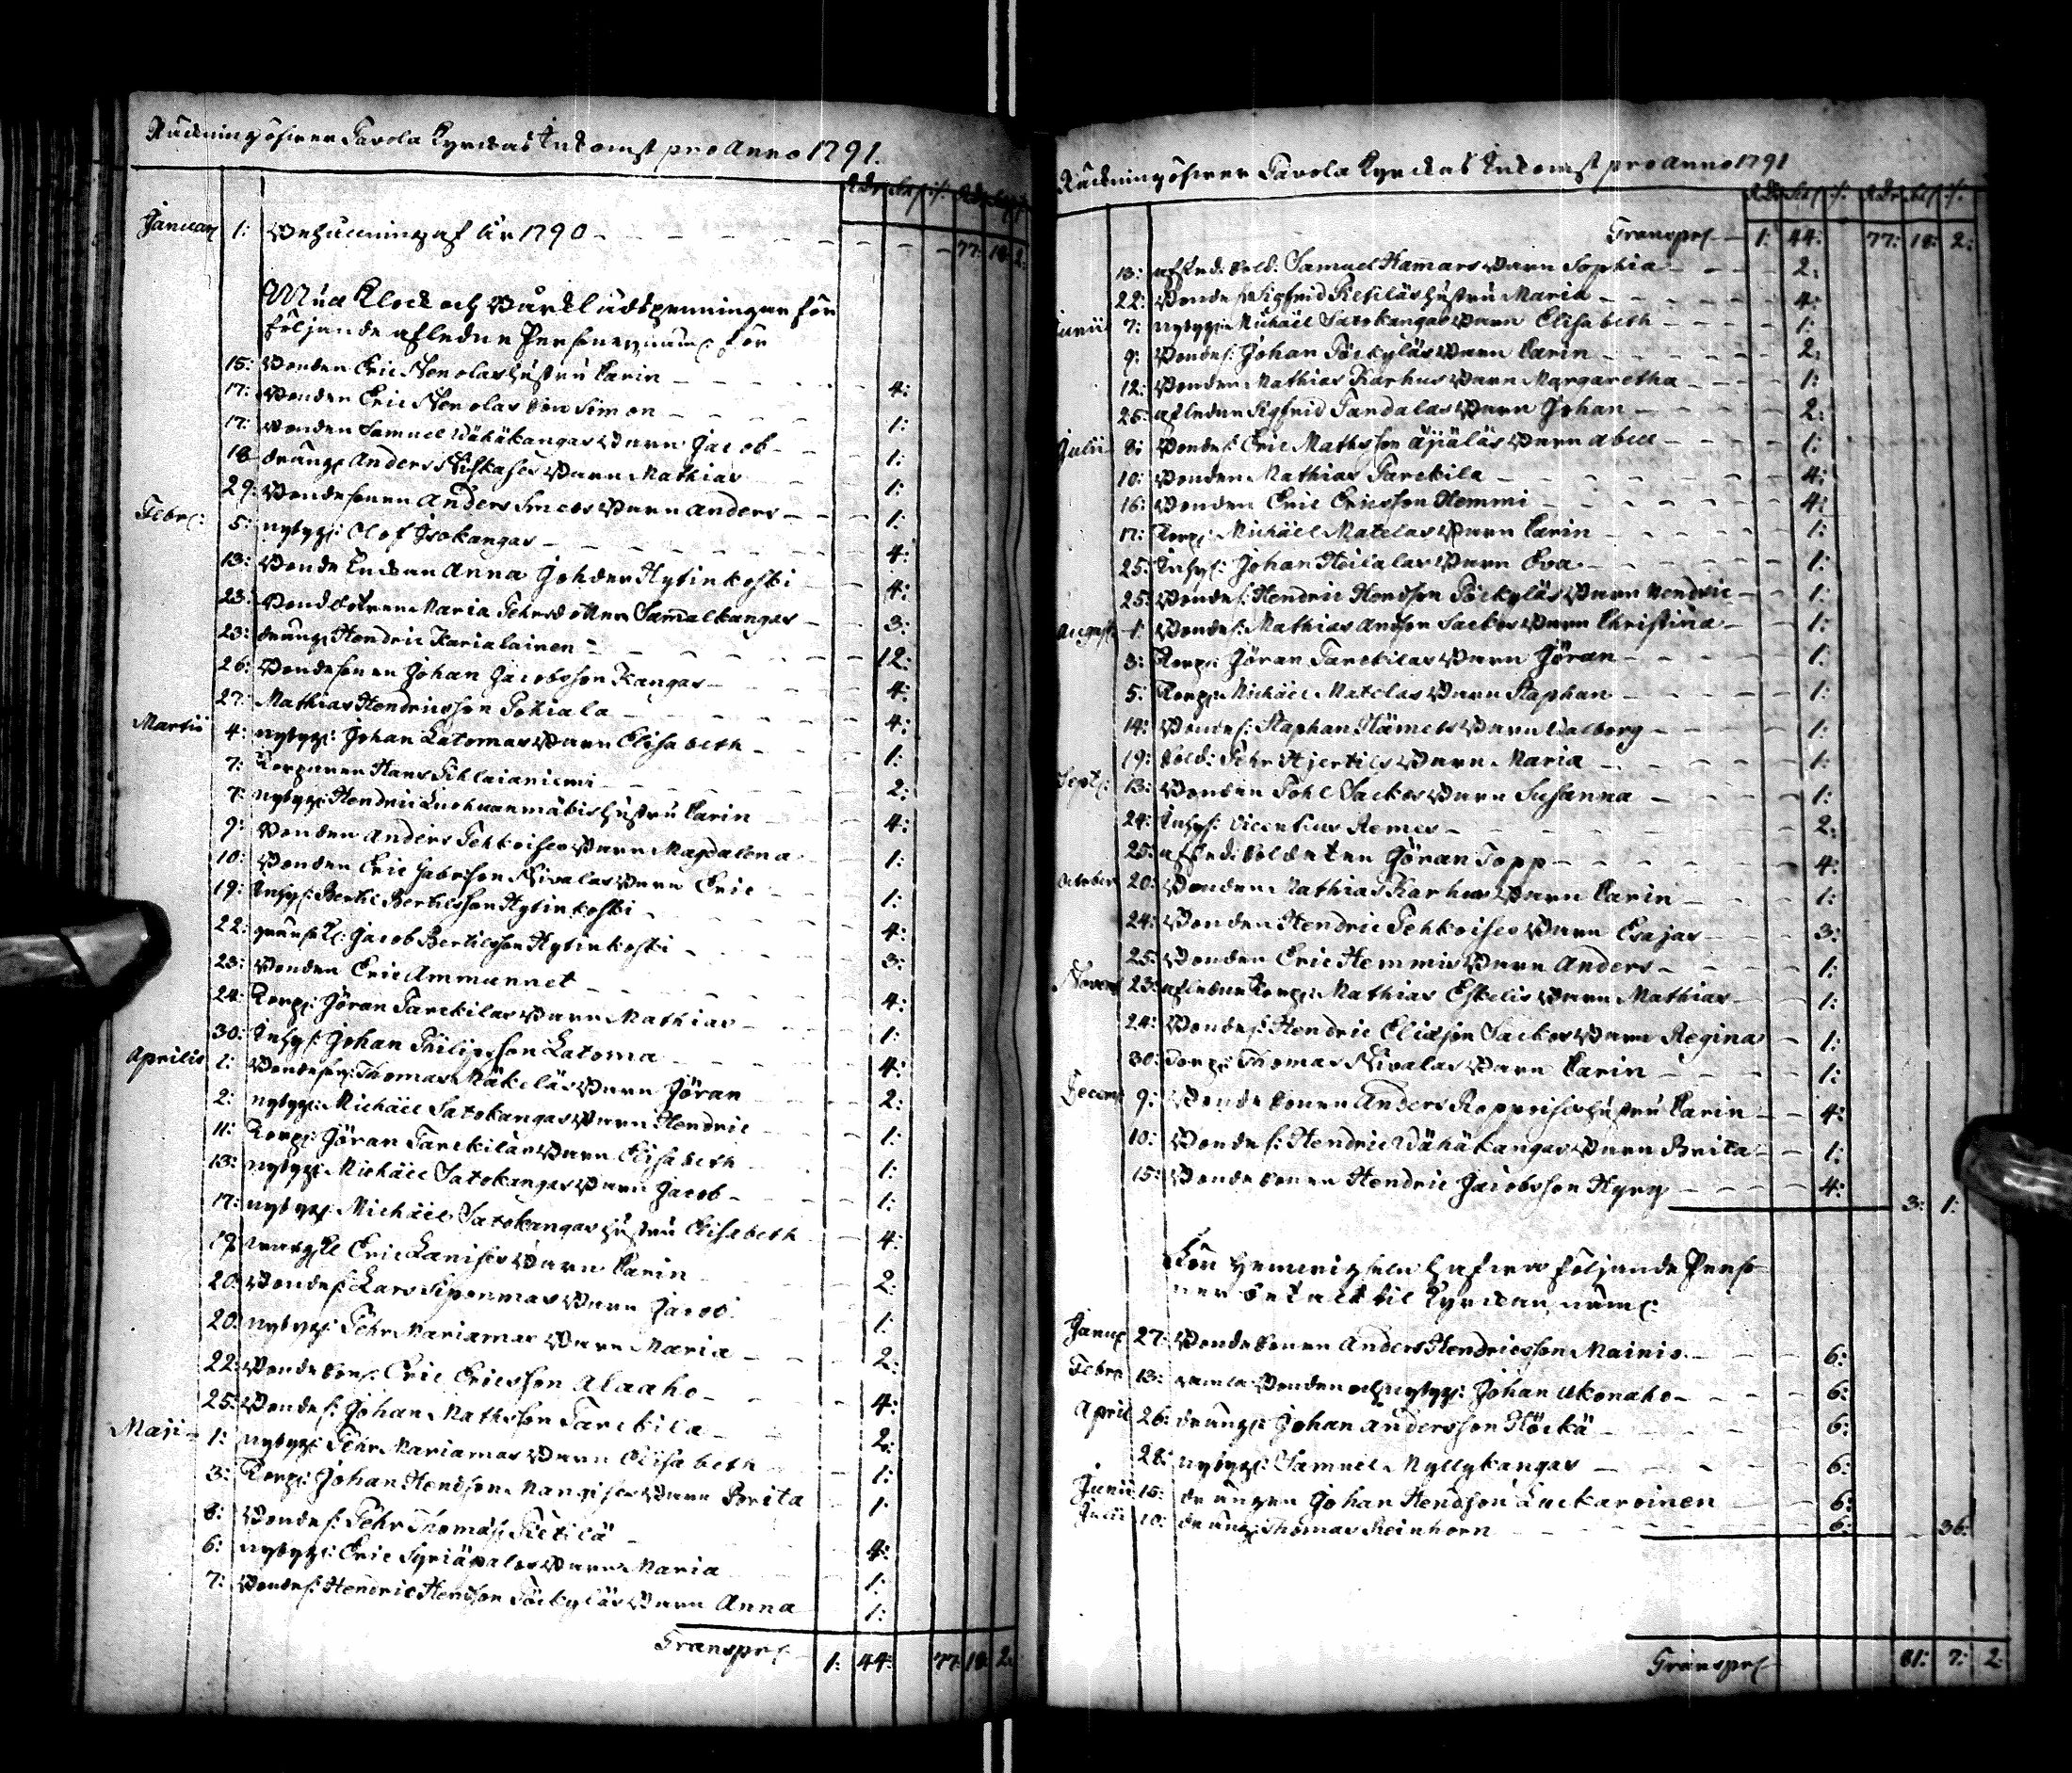 Räckning öfwer Pavola Kyrckas Inkomst pro Anno 1791.
Rdr Sk: Rdr Sk:
Januarj 1: Behållning af År 1790 - 77: 18: 2:
Med Klock och Bårklädspenningar för
följande aflednе Personer, näml: för
15: Bonden Eric Nenolas Hustru Carin - 4:
17: Bonden Eric Nenolas Son Simon - 1:
17: Bonden Samuel Wähäkangas Barn Jacob - 1:
18: dräng: Anders Barn Mathias 1:
29: Bondesonen Anders Barn Anders - 1:
Febr: 5: nybyg: Olof Isokangas - 4:
13: Bonde Enkan Anna Hytinkoski - 4:
23: Bond dottren Maria Pehrsdotter - 3:
23: dräng: Hendric Karialainen - 12:
26: Bondesonen Johan Jacobsson Kangas - 4:
27: Mathias Hendricsson Pohiala - 4:
Martii 4: nybyg: Johan Latomas Barn Elisabeth - 1:
7: Torparen Hans Pihlaianiemi - 2:
7: nybyg: Hendric Hustru Carin 4:
9: Bonden Anders Pehkoises Barn Magdalena 1:
10: Bonden Eric Nivalas Barn Eric - 1:
19: Inhys: Bertil Bertilsson Hytinkoski - 4:
22: Jacob Bertilsson Hytinkoski - 3:
23: Bonden Eric Ammunnet - 4:
24: Torp: Göran Tarckilas Barn Mathias - 1:
30: Inhys: Johan Philipsson Latoma 4:
Aprilis 1: Bondeson: Thomas Mäkeläs Barn Göran 2:
2: nybyg: Michäel Satokangas Barn Hendric 1:
11: Torp: Göran Tarckilas Barn Elisabeth 1:
13: nybyg: Michäel Satokangas Barn Jacob - 1:
17: nybyg: Michäel Satokangas Hustru Elisabeth 4:
19: Eric Barn Carin 2:
20: Bondes: Lars Barn Jacob 1:
20: nybyg: Pehr Mariamas Barn Maria - 2:
22: Bondeson: Eric Ericsson Alaaho - 4:
25: Bondes: Johan Mathsson Tarckila - 2:
Maji 1: nybyg: Pehr Mariamas Barn Elisabeth - 1:
3: Torp: Johan Hendsson Barn Brita 1:
6: Bondes: Pehr Thomass: Kietilä - 4:
6: nybyg: Eric Syriäpalos Barn Maria 1:
7: Bondes: Hendric Hendsson Pöckyläs Barn Anna 1:
Transport 1: 44: 77: 18: 2:
Räckning öfwer Pavola Kyrckas Inkomst pro Anno 1791
Rdr Sk: Rdr Sk:
Transport - 1: 44: 77: 18: 2:
13: afsked: Sold: Samuel Hamars Barn Sophia - 2:
22: Bondes: Sigfrid Hustru Maria - 4:
Junii 7: nybyg: Michäel Satokangas Barn Elisabeth - 1:
9: Bondes: Johan Pöckyläs Barn Carin - 2:
12: Bonden Mathias Karhus Barn Margaretha - 1:
26: aflednе Sigfrid Tandalas Barn Johan - 2:
Julii 8: Bondes: Eric Mathsson Äijäläs Barn Abel - 1:
10: Bonden Mathias Tarckila - 4:
16: Bonden Eric Ericsson Hemmi - 4:
17: Torp: Michäel Matelas Barn Carin - 1:
25: Inhys: Johan Barn Eva - 1:
25: Bondes: Hendric Hendsson Pöckyläs Barn Hendric - 1:
August: 1: Bondes: Mathias Andsson Sackos Barn Christina - 1:
3: Torp: Göran Tarckilas Barn Göran - 1:
5: Torp: Michäel Matelas Barn Staphan - 1:
14: Bondes: Staphan Barn Walborg - 1:
19: Sold: Pehr Hjertils Barn Maria - 1:
Sept: 13: Bonden Pohl Sackos Barn Susanna - 1:
24: Inhys: Vicentius Remes - 2:
25: afsked: Soldaten Göran Topp - 4:
October 20: Bonden Mathias Karhus Barn Carin - 1:
24: Bonden Hendric Pehkoises Barn Esajas - 3:
25: Bonden Eric Hemmis Barn Anders - 1:
Novem: 23: aflednе Torp: Mathias Eskelis Barn Mathias - 1:
24: Bondes: Hendric Eliasson Sackos Barn Regina - 1:
30: Torp: Thomas Nivalas Barn Carin - 1:
Decem: 9: Bondesonen Anders Roppoises Hustru Carin - 4:
10: Bondes: Hendric Wähäkangas Barn Brita - 1:
15: Bondesonen Hendric Jacobsson Hyry - 4:
3: 1:
För hafwa följande Perso-
ner betalt til Kyrckan, näml:
Janu: 27: Bondesonen Anders Hendricsson Mainio - 6:
Febr: 13: gamla Bonden och nybyg: Johan Ukonaho - 6:
April 26: dräng: Johan Andersson Höckä - 6:
28: nybyg: Samuel Myllykangas - 6:
Junii 15: drängen Johan Hendsson Luckaroinen 6:
Julii 10: dräng: Thomas Reinhorn - 6:
36:
Transport 81: 7: 2